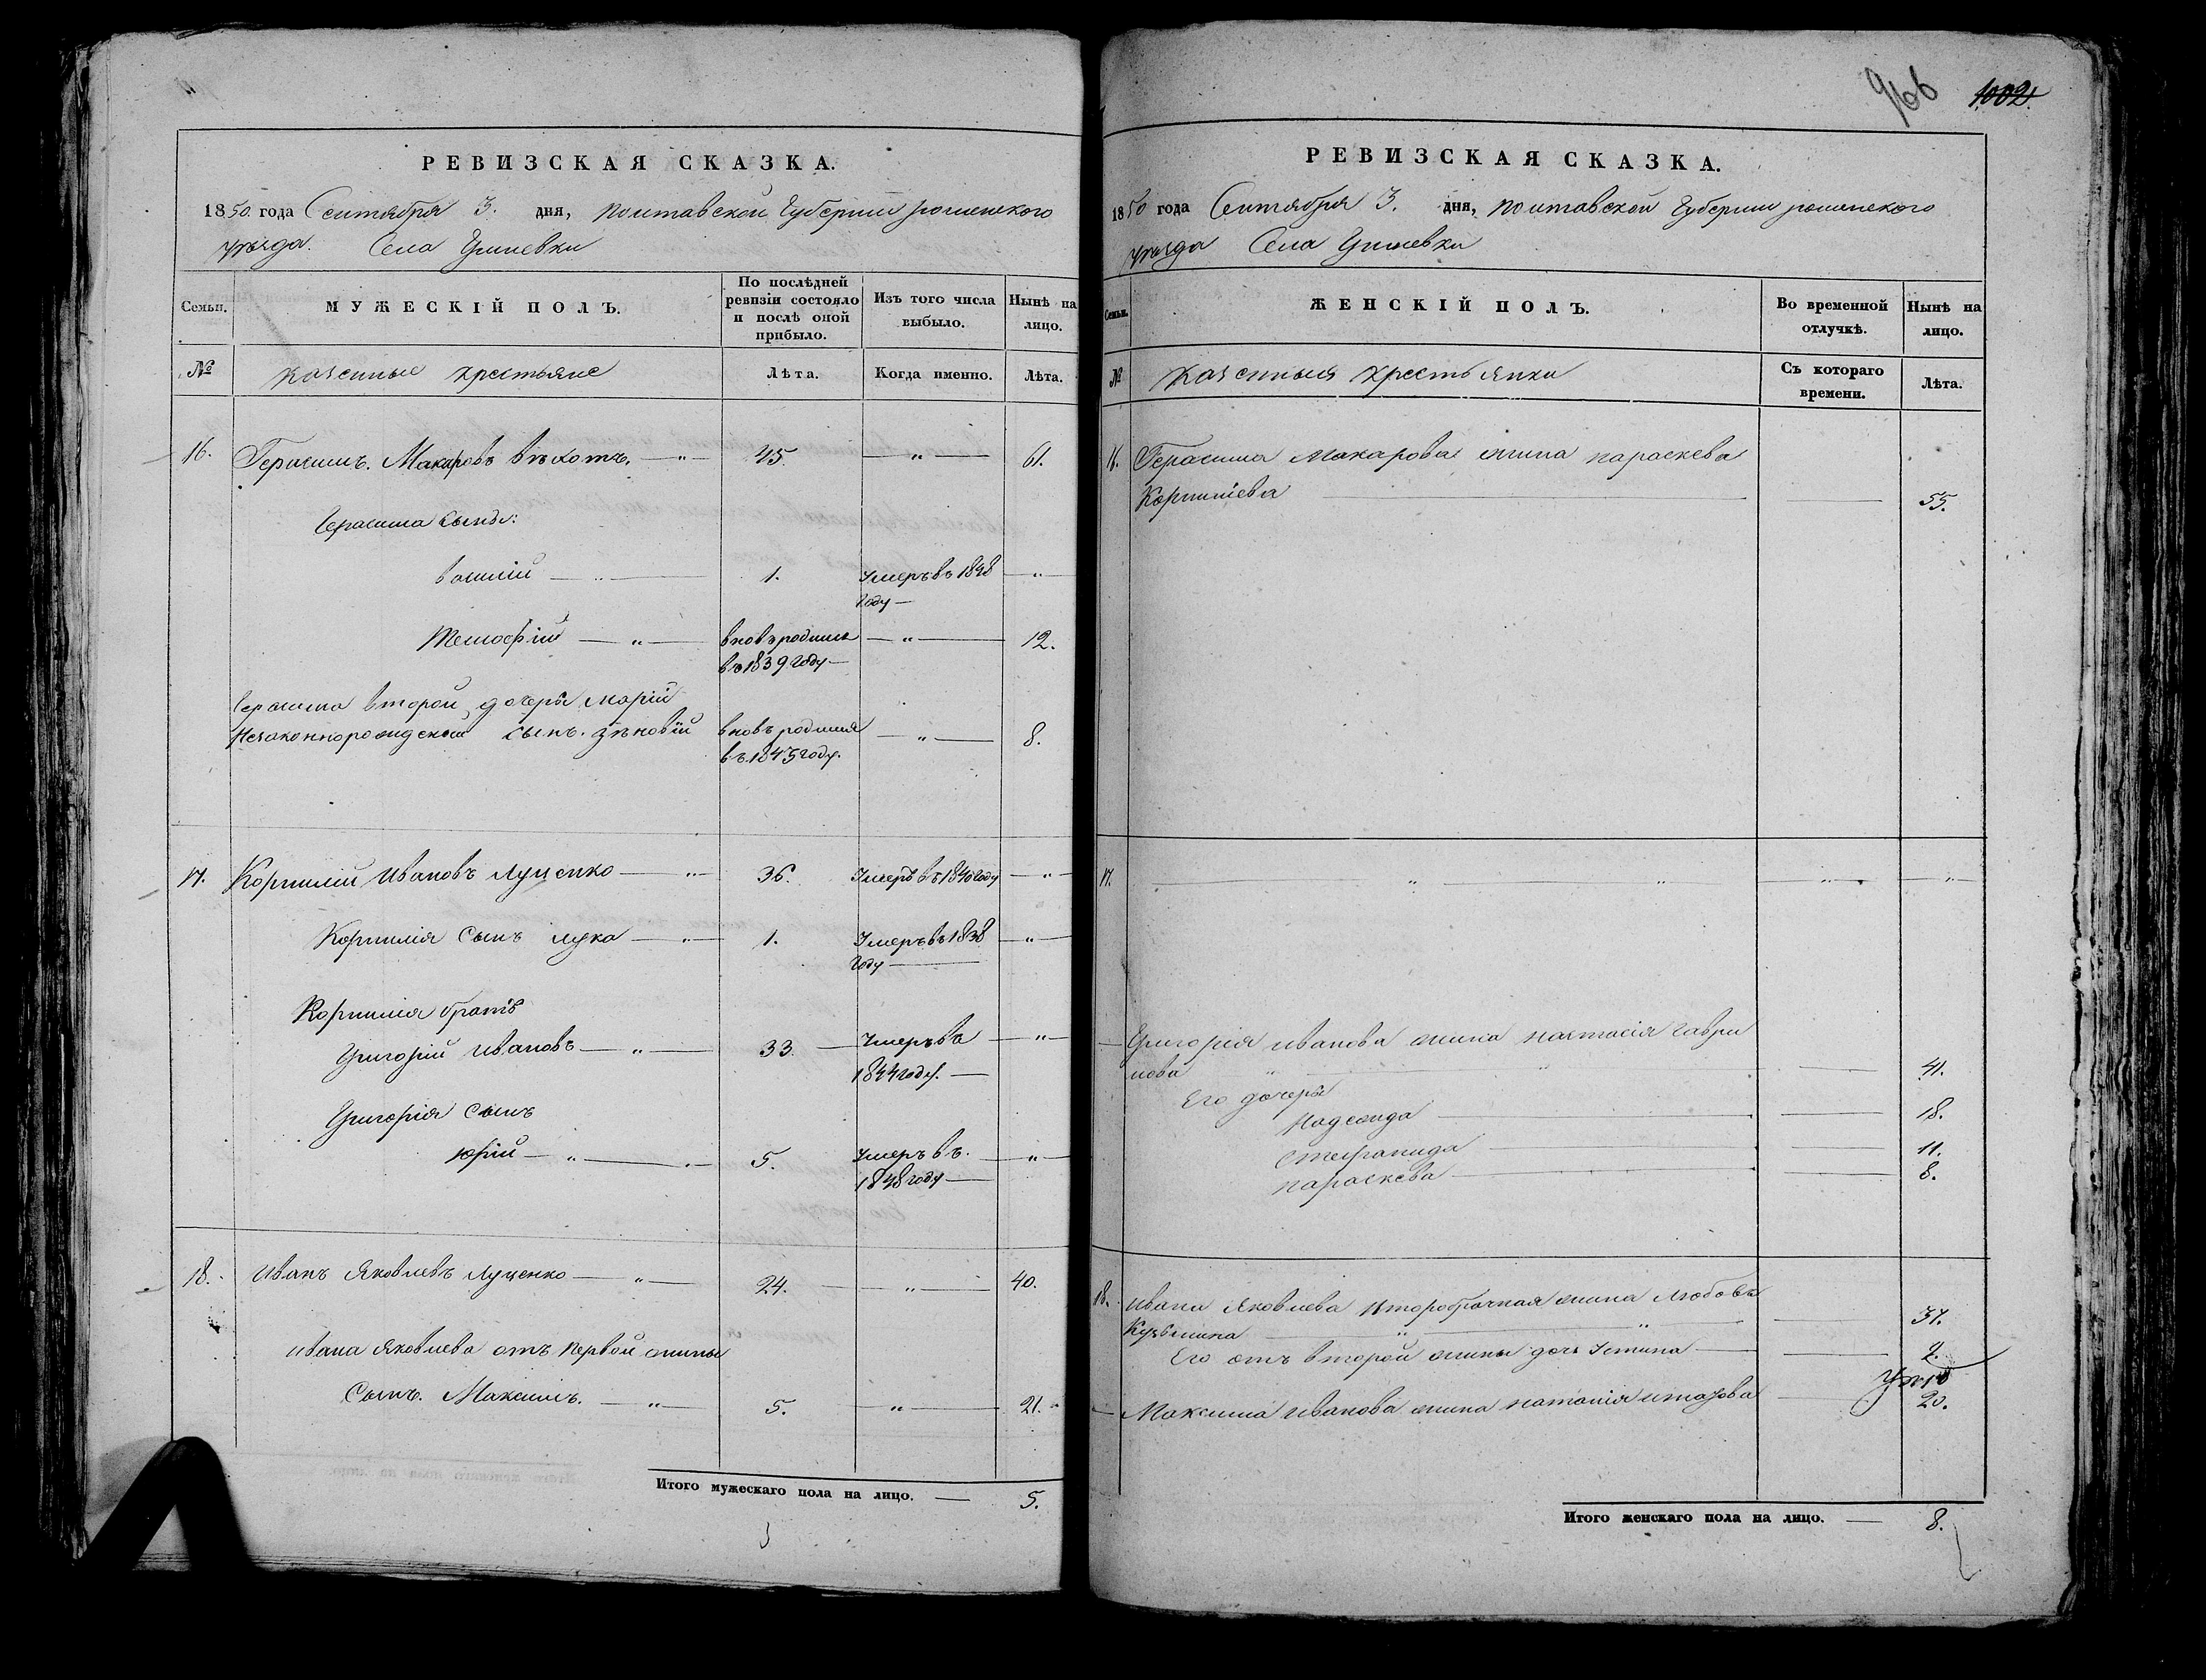 РЕВИЗСКАЯ СКАЗКА.
1850. года Сентября 3. дня, полтавской Губернии роменского
уезда. Села
Семьи. МУЖЕСКІЙ ПОЛЪ. По послѣдней ревизіи состояло и послѣ оной прибыло. Изъ того числа выбыло. Нынѣ на лицо.
№ казенные крестьяне Лѣта. Когда именно. Лѣта.
16. Герасимъ. Макаровъ 45. — „ — 61.
Герасима сыны:
василій — „ — 1. Умеръ въ 1848 — „ —
году —
Тимофій — „ — вновь родился — „ — 12.
въ 1839 году —
Герасима второй дочеры Марій
Незаконнорожденый сынъ. Зѣновій вновь родился — „ — 8.
въ. 1843 году.
17. Корнилій Ивановъ Луценко — „ — 36. Умеръ въ 1840 году — „ —
Корнилія сынъ лука — „ — 1. Умеръ въ 1838 — „ —
году —
Корнилія братъ
Григорій Ивановъ — „ — 33. — Умеръ въ — „ —
1844 году. —
Григорія сынъ
юрій — „ — 5. Умеръ въ. — „ —
1848 году —
18. Иванъ Яковлевъ Луценко — „ — 24. — „ — 40.
Ивана Яковлева отъ первой жины
Сынъ. Максимъ. — „ — 5. — „ — 21.
Итого мужескаго пола на лицо. — 5.
966 1002
РЕВИЗСКАЯ СКАЗКА.
1850 года Сентября 3. дня, полтавской Губернии роменского
уезда Села
Семьи. ЖЕНСКІЙ ПОЛЪ. Во временной отлучкѣ. Нынѣ на лицо.
№ казенныя крестьянки Съ котораго времени. Лѣта.
16. Герасима Макарова жина параскева
Корнилиева — 55.
17. „ „ „ „
— Григорія Иванова жина настасія гаври
лова — 41.
Его дочеры
Надежда — 18.
Стефанида — 11.
параскева — 8.
18. Ивана Яковлева второбрачная жина Любовь
Кузьмина — „ — „ — 37.
Его отъ второй жины дочь Устина — 2.
— Максима Иванова жина наталія — 20.
Итого женскаго пола на лицо. — 8.